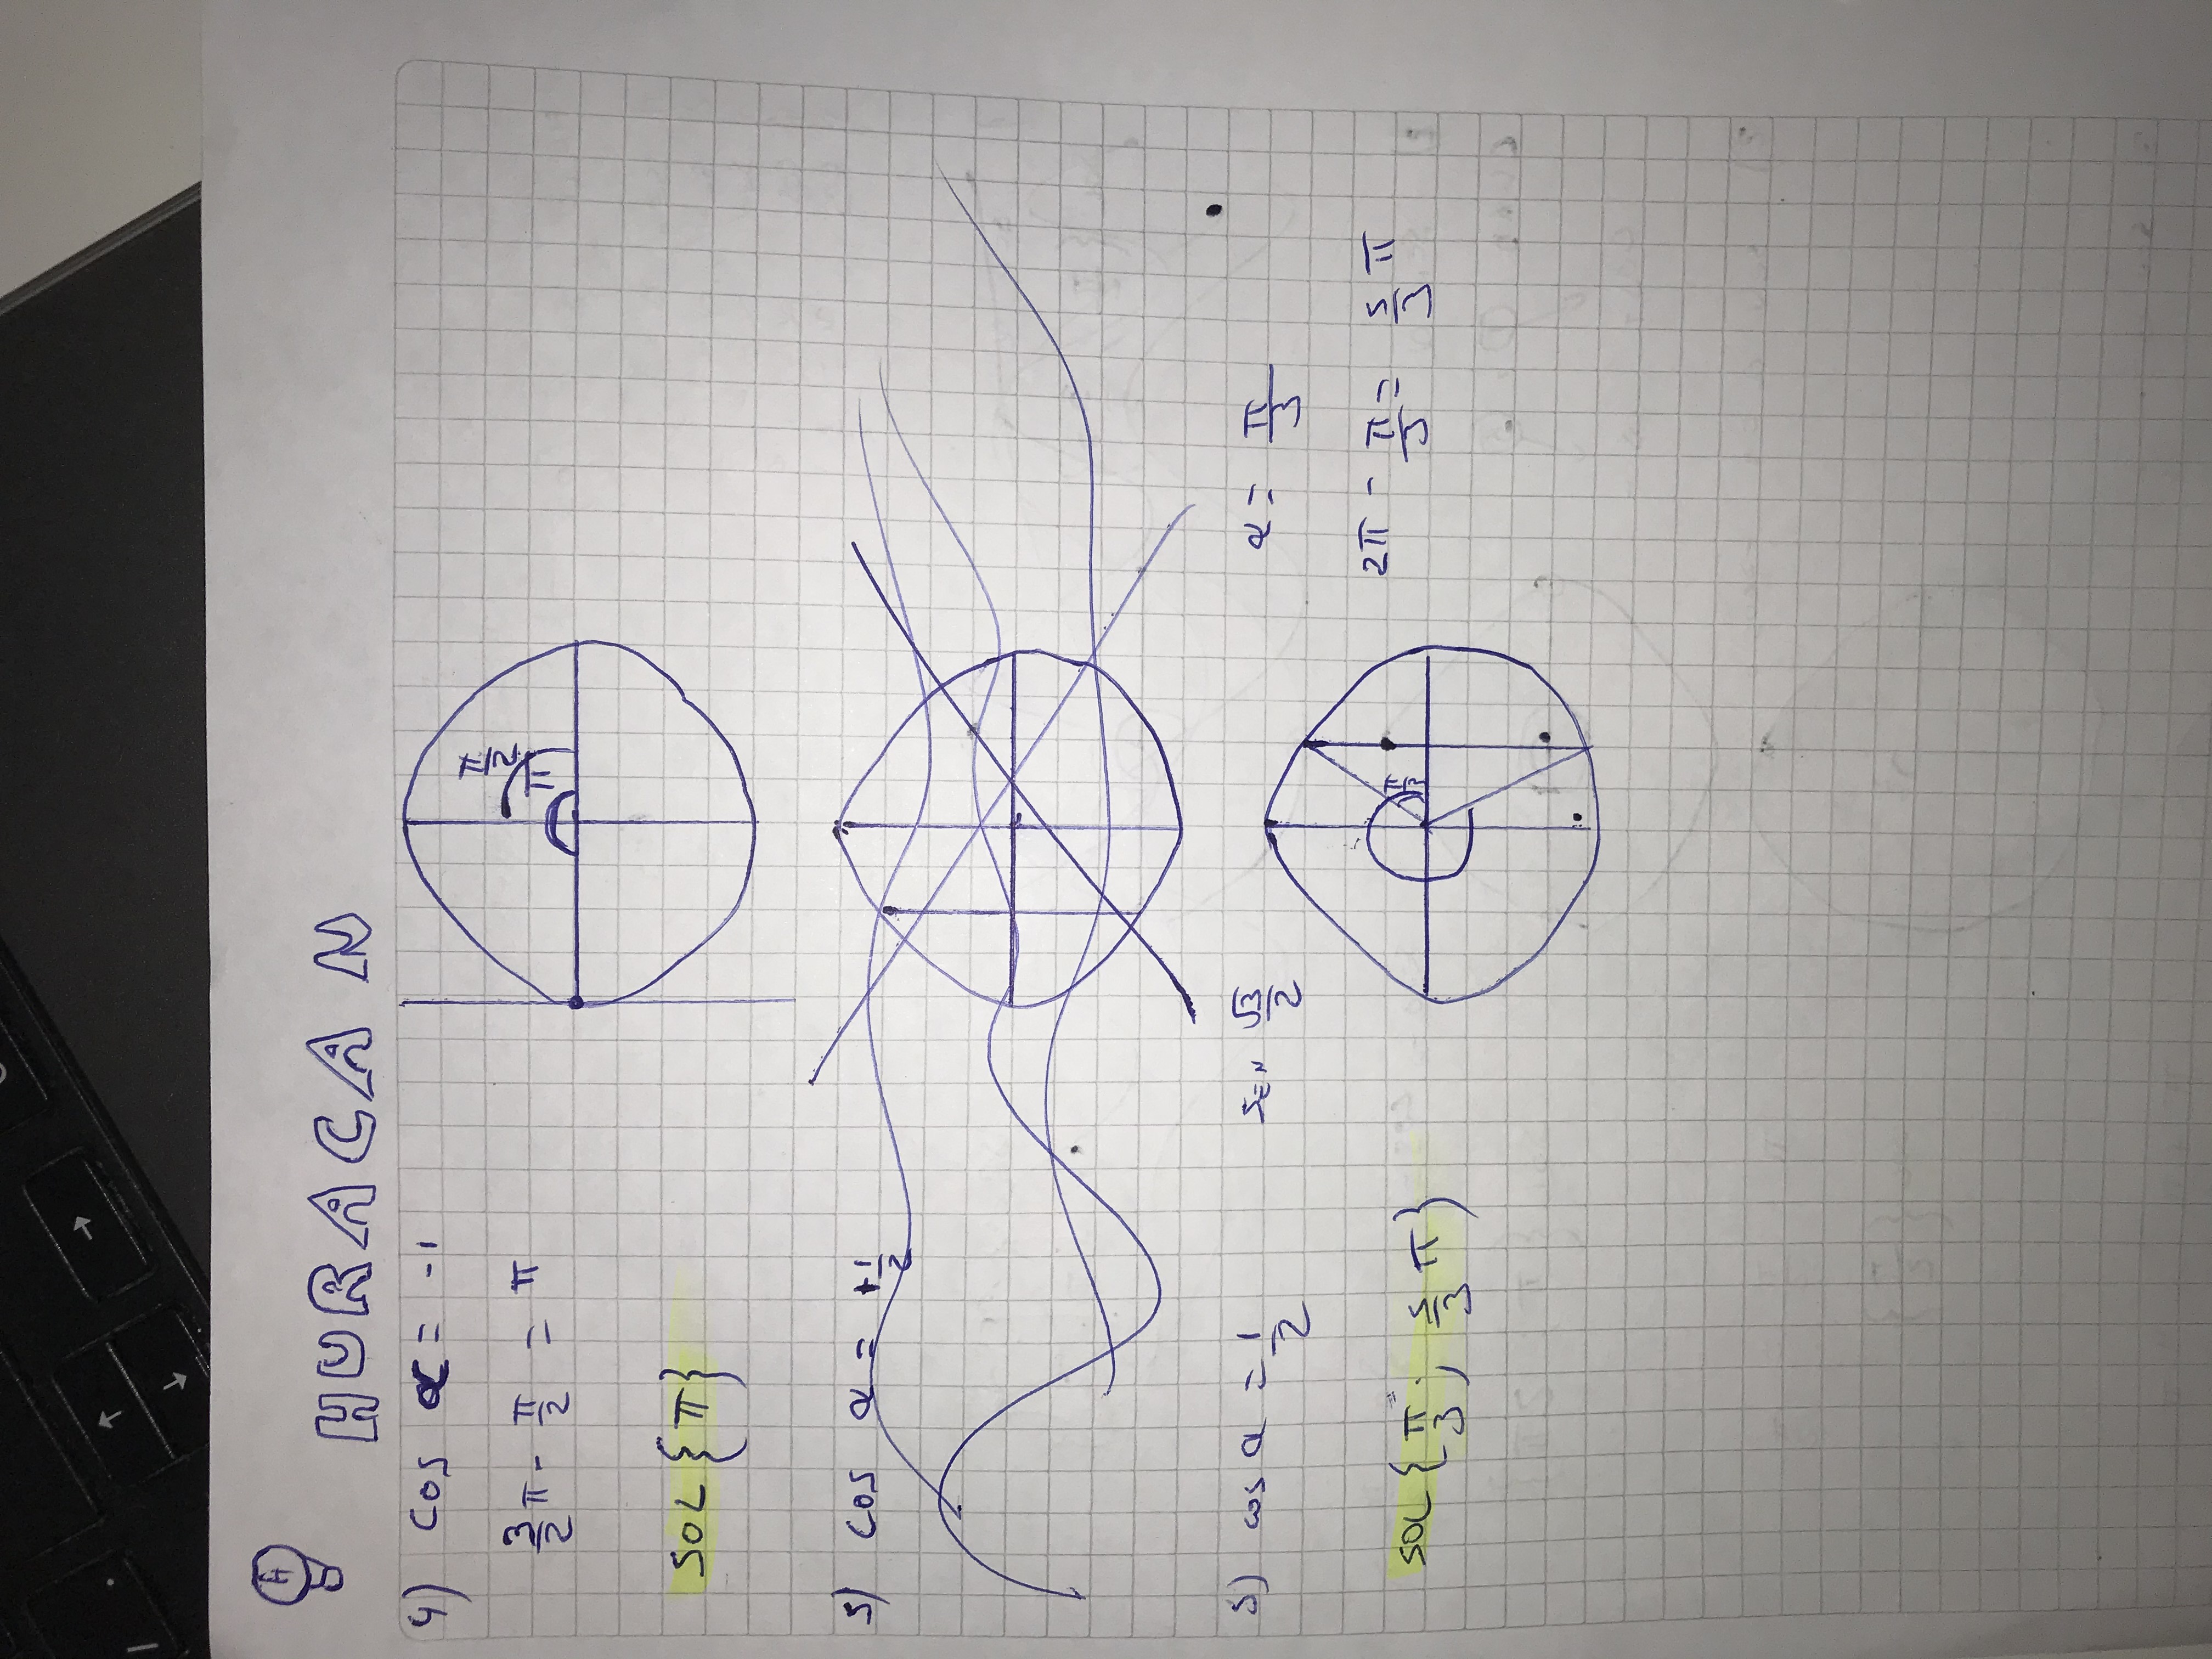 A
HURACAN
4) cos α = -1
3/2 π - π/2 = π
π/2
π
SOL {π}
5) cos α = +1/2
5) cos α = 1/2 SEN √3/2 α = π/3
2π - π/3 = 5/3 π
π/3
SOL {π/3; 5/3 π}